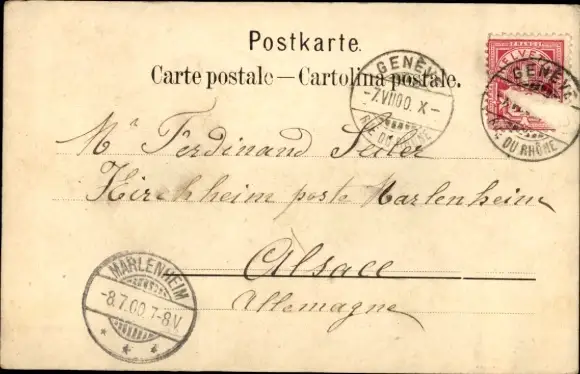 Postkarte.
Carte postale — Cartolina postale.
FRANCO
HELVE
GENÈVE
-7.VII00.X-
RUE DU RHÔNE
GENÈVE
DU RHÔNE
Mr Ferdinand Seiler
Kirchheim poste Marlenheim
Alsace
Allemagne
MARLENHEIM
-8.7.00.7-8V.